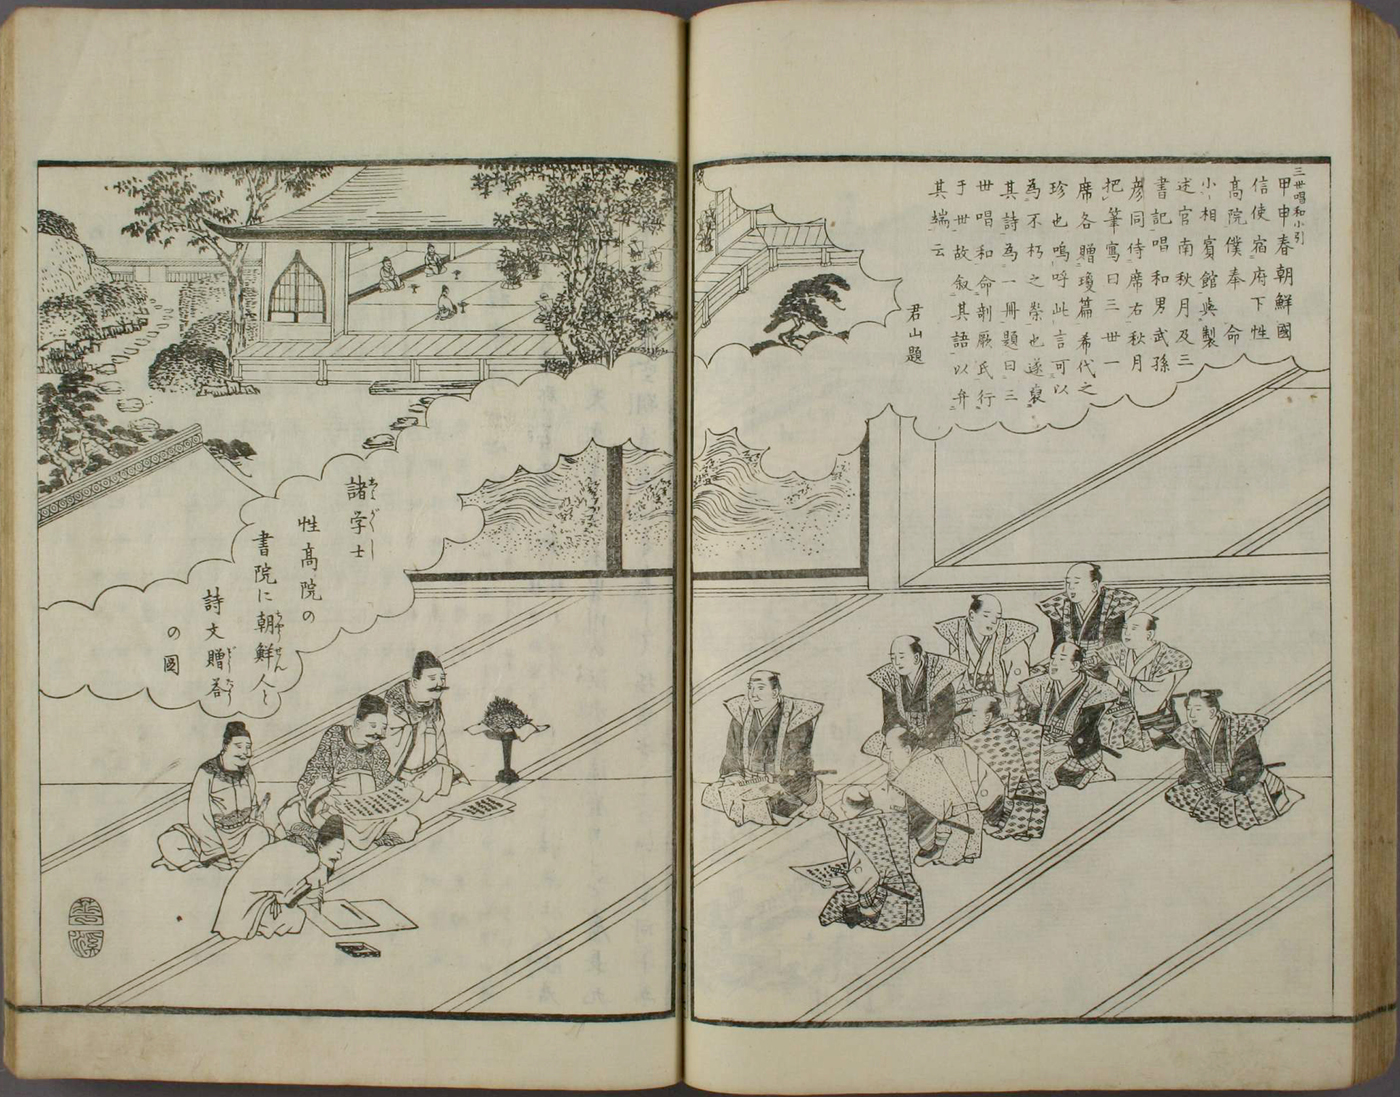 三世唱和小引
甲申春朝鮮國
信使宿府下性
高院僕奉 命
小相賓館與製
述官南秋月及三
書記唱和男武孫
彦同侍席右秋月
把筆寫曰三世一
席各贈瓊篇希代之
珍也嗚呼此言可以
為不朽之榮也遂裒
其詩為一冊題曰三
世唱和命剞厥氏行
于世故叙其語以弁
其端云
君山題
諸学士
性高院の
書院に朝鮮人と
詩文贈答
の圖